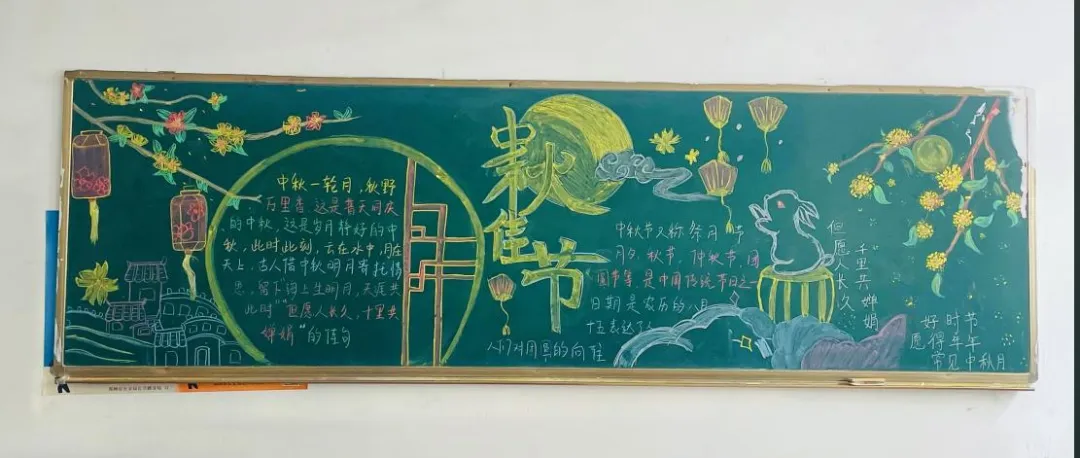 中秋一轮月，秋野
万里香.这是普天同庆
的中秋，这是岁月静好的中
秋，此时此刻，云在水中，月在
天上，古人借中秋明月寄托情
思，写下"海上生明月，天涯共
此时""但愿人长久，千里共
婵娟"的佳句
中秋佳节
中秋节又称祭月节
月夕，秋节，仲秋节，
圆节等.是中国传统节日之一
日期是农历的八月
十五表达了
人们对团圆的向往
但愿人长久
千里共婵娟
好时节
愿得年年
常见中秋月